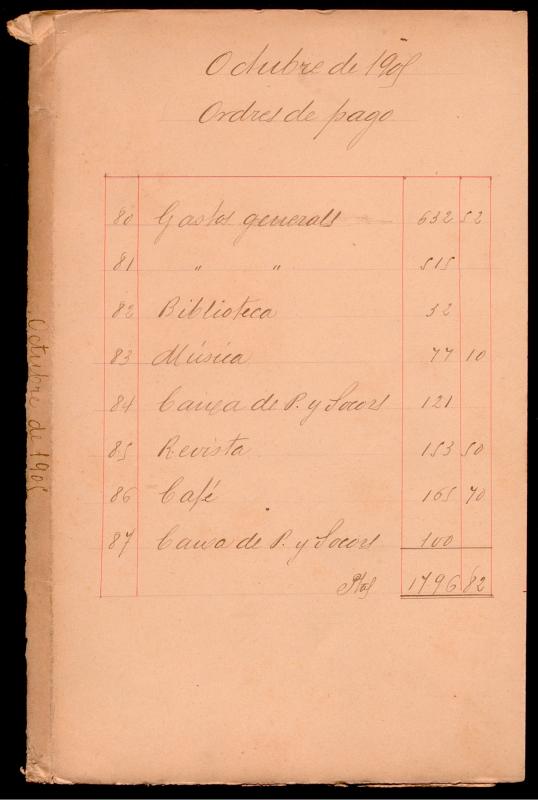 Octubre de 1905
Ordres de pago
80 Gastos generals 632 52
81 " " 515
82 Biblioteca 32
83 Música 77 10
84 Caixa de P. y Socors 121
85 Revista 153 50
86 Café 165 70
87 Caixa de P. y Socors 100
Ptas 1796 82
Octubre de 1905